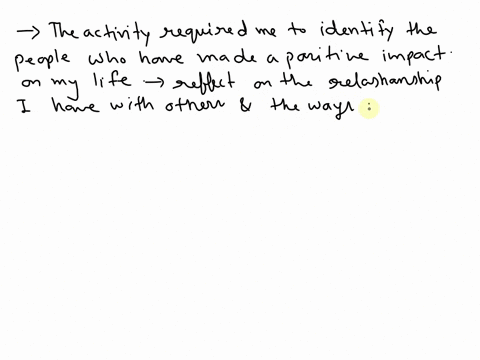 → The activity required me to identify the
people who have made a positive impact.
on my life → reflect on the relashanship
I have with others & the ways :